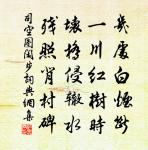 幾處白煙斷
一川紅樹時
壞橋侵轍水
殘照背村碑
司空圖閑步詞典網集